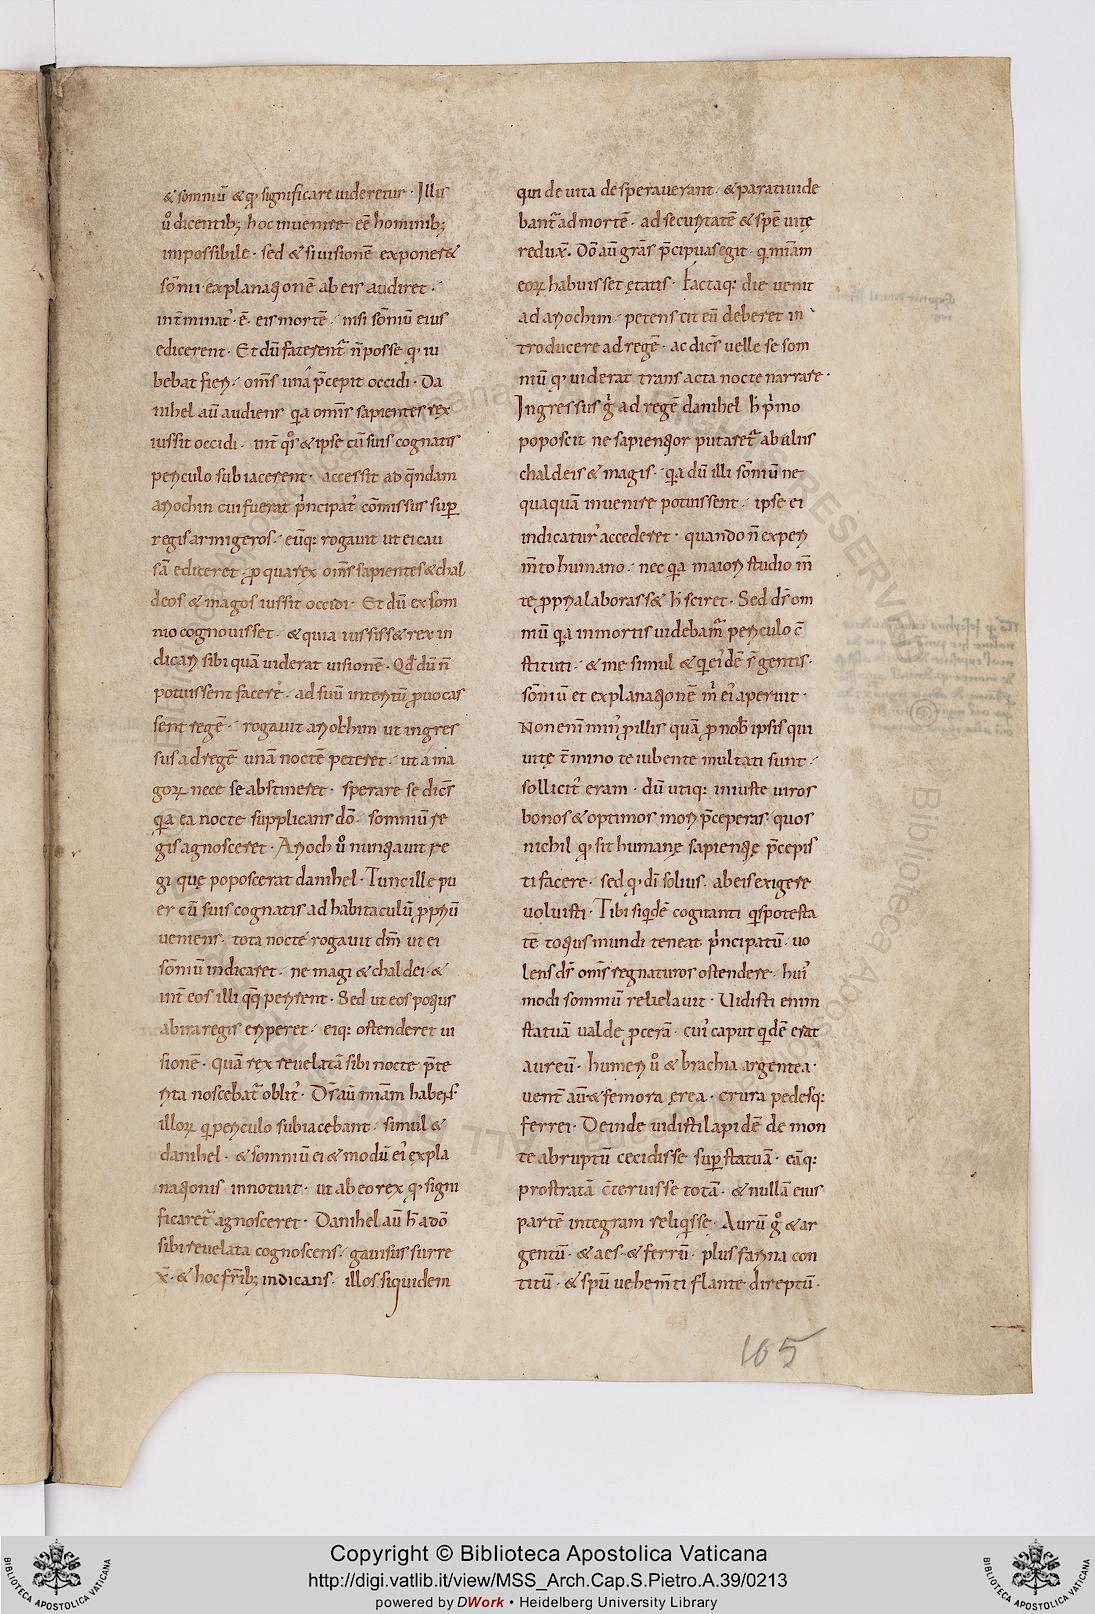 & somniũ & qđ significare uideretur · Illis
ũo dicentib; hoc inuenire eẽ hominib;
impossibile · sed & si uisionẽ exponer&
sõnii explanaꝗonẽ ab eis audiret ·
int̃minatꝰ · ẽ · eis mortẽ · nisi sõniũ eius
edicerent · Et dũ faterent̃ ñ posse qđ iu
bebat fieri · om̃s unã p̃cepit occidi · Da
nihel aũ audiens q̃a om̃s sapientes rex
iussit occidi · int̃ qᵒs & ipse cũ suis cognatis
periculo subiacerent · accessit ad q̃ndam
ariochin cui fuerat p̃ncipatꝰ cõmissus sup̱
regis armigeros · eũq: rogauit ut ei cau
sã ediceret · ꝓ qua rex om̃s sapientes & chal
deos & magos iussit occidi · Et dũ ex som
nio cognouisset · & quia iussiss& rex in
dicari sibi quã uiderat uisionẽ · Qđ dũ ñ
potuissent facere · ad suũ interitũ ꝓuocas
sent regẽ · rogauit ariokhin ut ingres
sus ad regẽ unã noctẽ peteret · ut a ma
gorꝝ nece se abstineret · sperare se dicẽs
q̃a ea nocte supplicans dõ · somniũ re
gis agnosceret · Arioch ũo nuntiauit re
gi quę poposcerat danihel · Tunc ille pu
er cũ suis cognatis ad habitaculũ ꝓpriũ
ueniens · tota nocte rogauit dm̃ ut ei
sõniũ indicaret · ne magi & chaldei · &
int̃ eos illi qq perirent · Sed ut eos potius
ab ira regis eriperet · eiq: ostenderet ui
sionẽ · quã rex reuelatã sibi nocte p̃te
rita noscebat̃ oblitꝰ · Ds̃ aũ miãm habens
illorꝝ qi periculo subiacebant · simul &
danihel · & somniũ ei & modũ eiꝰ expla
naꝗonis innotuit · ut ab eo rex qđ signi
ficaret̃ agnosceret · Danihel aũ h̃ a dõ
sibi reuelata cognoscens · gauisus surre
x̃ · & hoc fr̃ib; indicans · illos siquidem
qui de uita desperauerant · & parati uide
bant̃ ad mortẽ · ad securitatẽ & spẽ uitę
redux̃ · Dõ aũ grãs p̃cipuas egit · qđ miãm
eorꝝ habuisset ętatis · Factaq: die uenit
ad ariochim · petens cit eũ deberet in
troducere ad regẽ · ac dicẽs uelle se som
niũ qđ uiderat transacta nocte narrare ·
Ingressus g̃ ad regẽ danihel h̃ p̃mo
poposcit ne sapientior putaret̃ ab aliis
chaldeis & magis · q̃a dũ illi sõniũ ne
quaquã inuenire potuissent · ipse ei
indicaturꝰ accederet · quando ñ experi
m̃to humano · nec q̃a maiori studio m̃
te ꝓpria laborass& h̃ sciret · Sed ds̃ om
niũ q̃a in mortis uidebam̃ periculo cõ
stituti · & me simul & qi eiꝰdẽ s̃ gentis ·
sõniũ et explanaꝗonẽ m̃ eiꝰ aperuit ·
Non enim̃ minꝰ ꝓ illis quã ꝓ nob̃ ipsis qui
uitę t̃mino te iubente multati sunt ·
sollicitꝰ eram · dũ utiq: iniuste uiros
bonos & optimos mori p̃ceperas · quos
nichil qđ sit humanę sapientię p̃cepis
ti facere · sed qđ di solius · ab eis exigere
uoluisti · Tibi siqdẽ cogitanti qs potesta
tẽ totius mundi teneat p̃ncipatũ · uo
lens ds̃ om̃s regnaturos ostendere · huiꝰ
modi somniũ reuelauit · Uidisti enim
statuã ualde ꝓcerã · cuiꝰ caput qdẽ erat
aureũ · humeri ũo & brachia argentea ·
uent̃ aũ & femora ęrea · crura pedesq:
ferrei · Deinde uidisti lapidẽ de mon
te abruptũ cecidisse sup̱ statuã · eãq:
prostratã cõtriuisse totã · & nullã eius
partẽ integram reliqsse · Aurũ gᵒ & ar
gentũ · & aes · & ferrũ · plus farina con
titũ · & spũ uehem̃ti flante direptũ ·
105
ALL RIGHTS RESERVED
© Biblioteca Apostolica Vaticana
Copyright © Biblioteca Apostolica Vaticana
http://digi.vatlib.it/view/MSS_Arch.Cap.S.Pietro.A.39/0213
powered by DWork • Heidelberg University Library
BIBLIOTECA APOSTOLICA VATICANA
BIBLIOTECA APOSTOLICA VATICANA